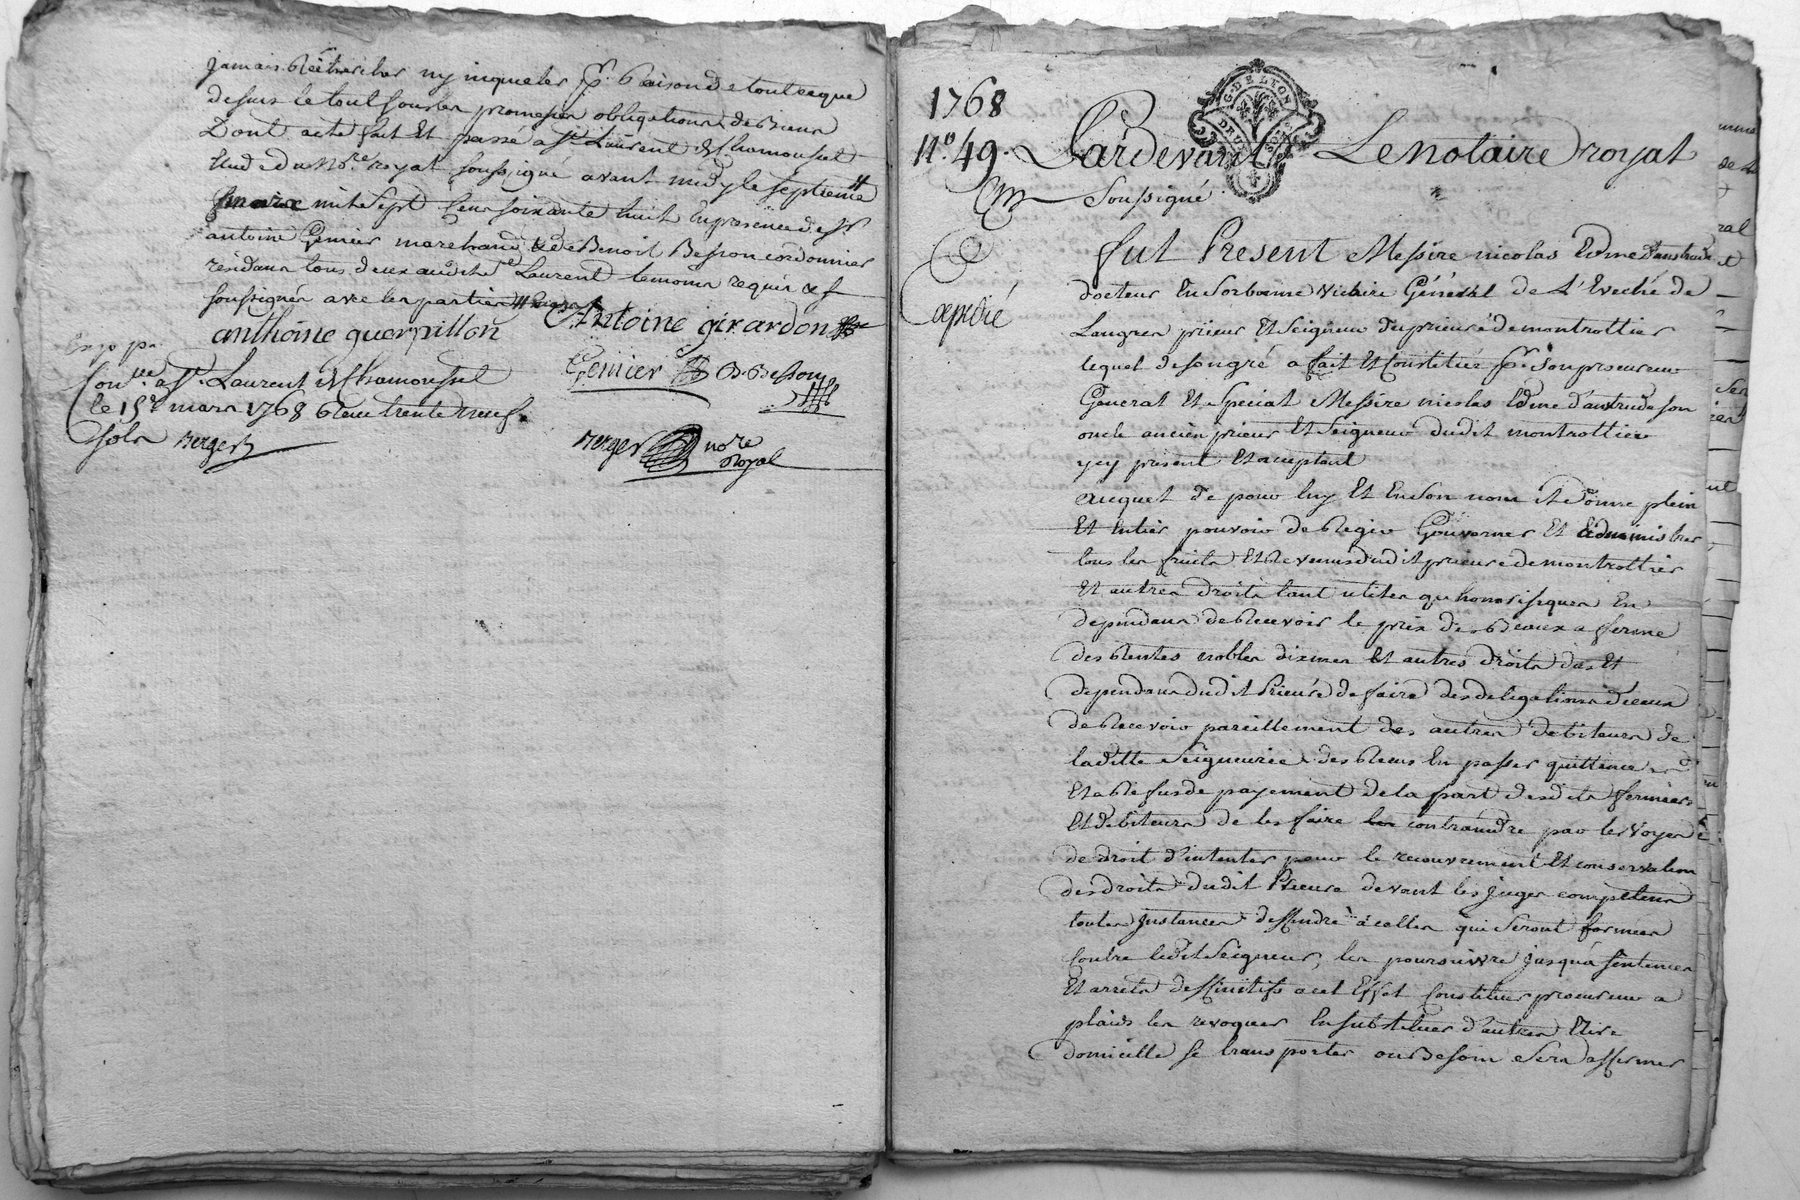 jamais Rechercher ny inquieter pr. Raison de tout ce que
dessus le tout sous les promesses obligations de Biens
Dont acte fait Et passé a St. Laurent de Chamousset
Etude du Nre. royal soussigné avant midy le septieme
mars mil sept Cens soixante huit En presence de sr
antoine Genier marchand & de Benoit Besson cordonnier
residans tous deux audit St Laurent temoins requis &
soussignés avec les parties
anthoine guerpillon Antoine girardon
Genier B. Besson
Conlle. a St. Laurent de Chamousset
le 15e mars 1768 Recu trente neuf
sols Berger
Berger nore
Royal
1768
No. 49. Pardevant Le notaire royal
Soussigné
G. DE LYON
fut Present Messire nicolas Edme Dautrude
docteur En Sorbonne vicaire Général de L'Eveché de
Langres prieur Et Seigneur du prieuré de montrottier
Expedié
lequel de son gré a fait Et Constitué pr. son procureur
General Et Special Messire nicolas Edme d'autrude son
oncle ancien prieur Et Seigneur dudit montrottier
ycy present Et acceptant
auquel de pour luy Et En son nom il donne plein
Et Entier pouvoir de Regir Gouverner Et administrer
tous les fruits Et Revenus dudit prieuré de montrottier
Et autres droits tant utiles qu'honorifiques En
dependans de Recevoir le prix des Beaux a ferme
des Rentes nobles dixmes Et autres droits dus Et
dependans dudit Prieuré de faire des delegations d'iceux
de Recevoir pareillement des autres debiteurs de
laditte Seigneurie des Reçus En passer quittance
Et a Refus de payement de la part desdits fermiers
Et debiteurs de les faire contraindre par les voyes
de droit d'intenter pour le recouvrement Et conservation
des droits dudit Prieuré devant les juges competens
toutes Instances deffendre a celles qui Seront formées
Contre ledit Seigneur, les poursuivre jusqu'a sentences
Et arrets deffinitifs a cet Effet Constituer procureur a
plaids les revoquer En substituer d'autres Elire
domicille se transporter ou Besoin sera affermer